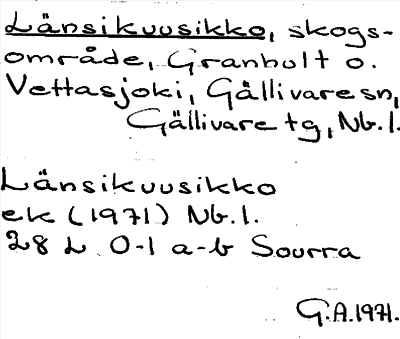 Länsikuusikko, skogs-
område, Granhult o.
Vettasjoki, Gällivare sn,
Gällivare tg, Nb.l.
Länsikuusikko
ek (1971) Nb.l.
28 L 0-1 a-b Sourra
G.A.1971.